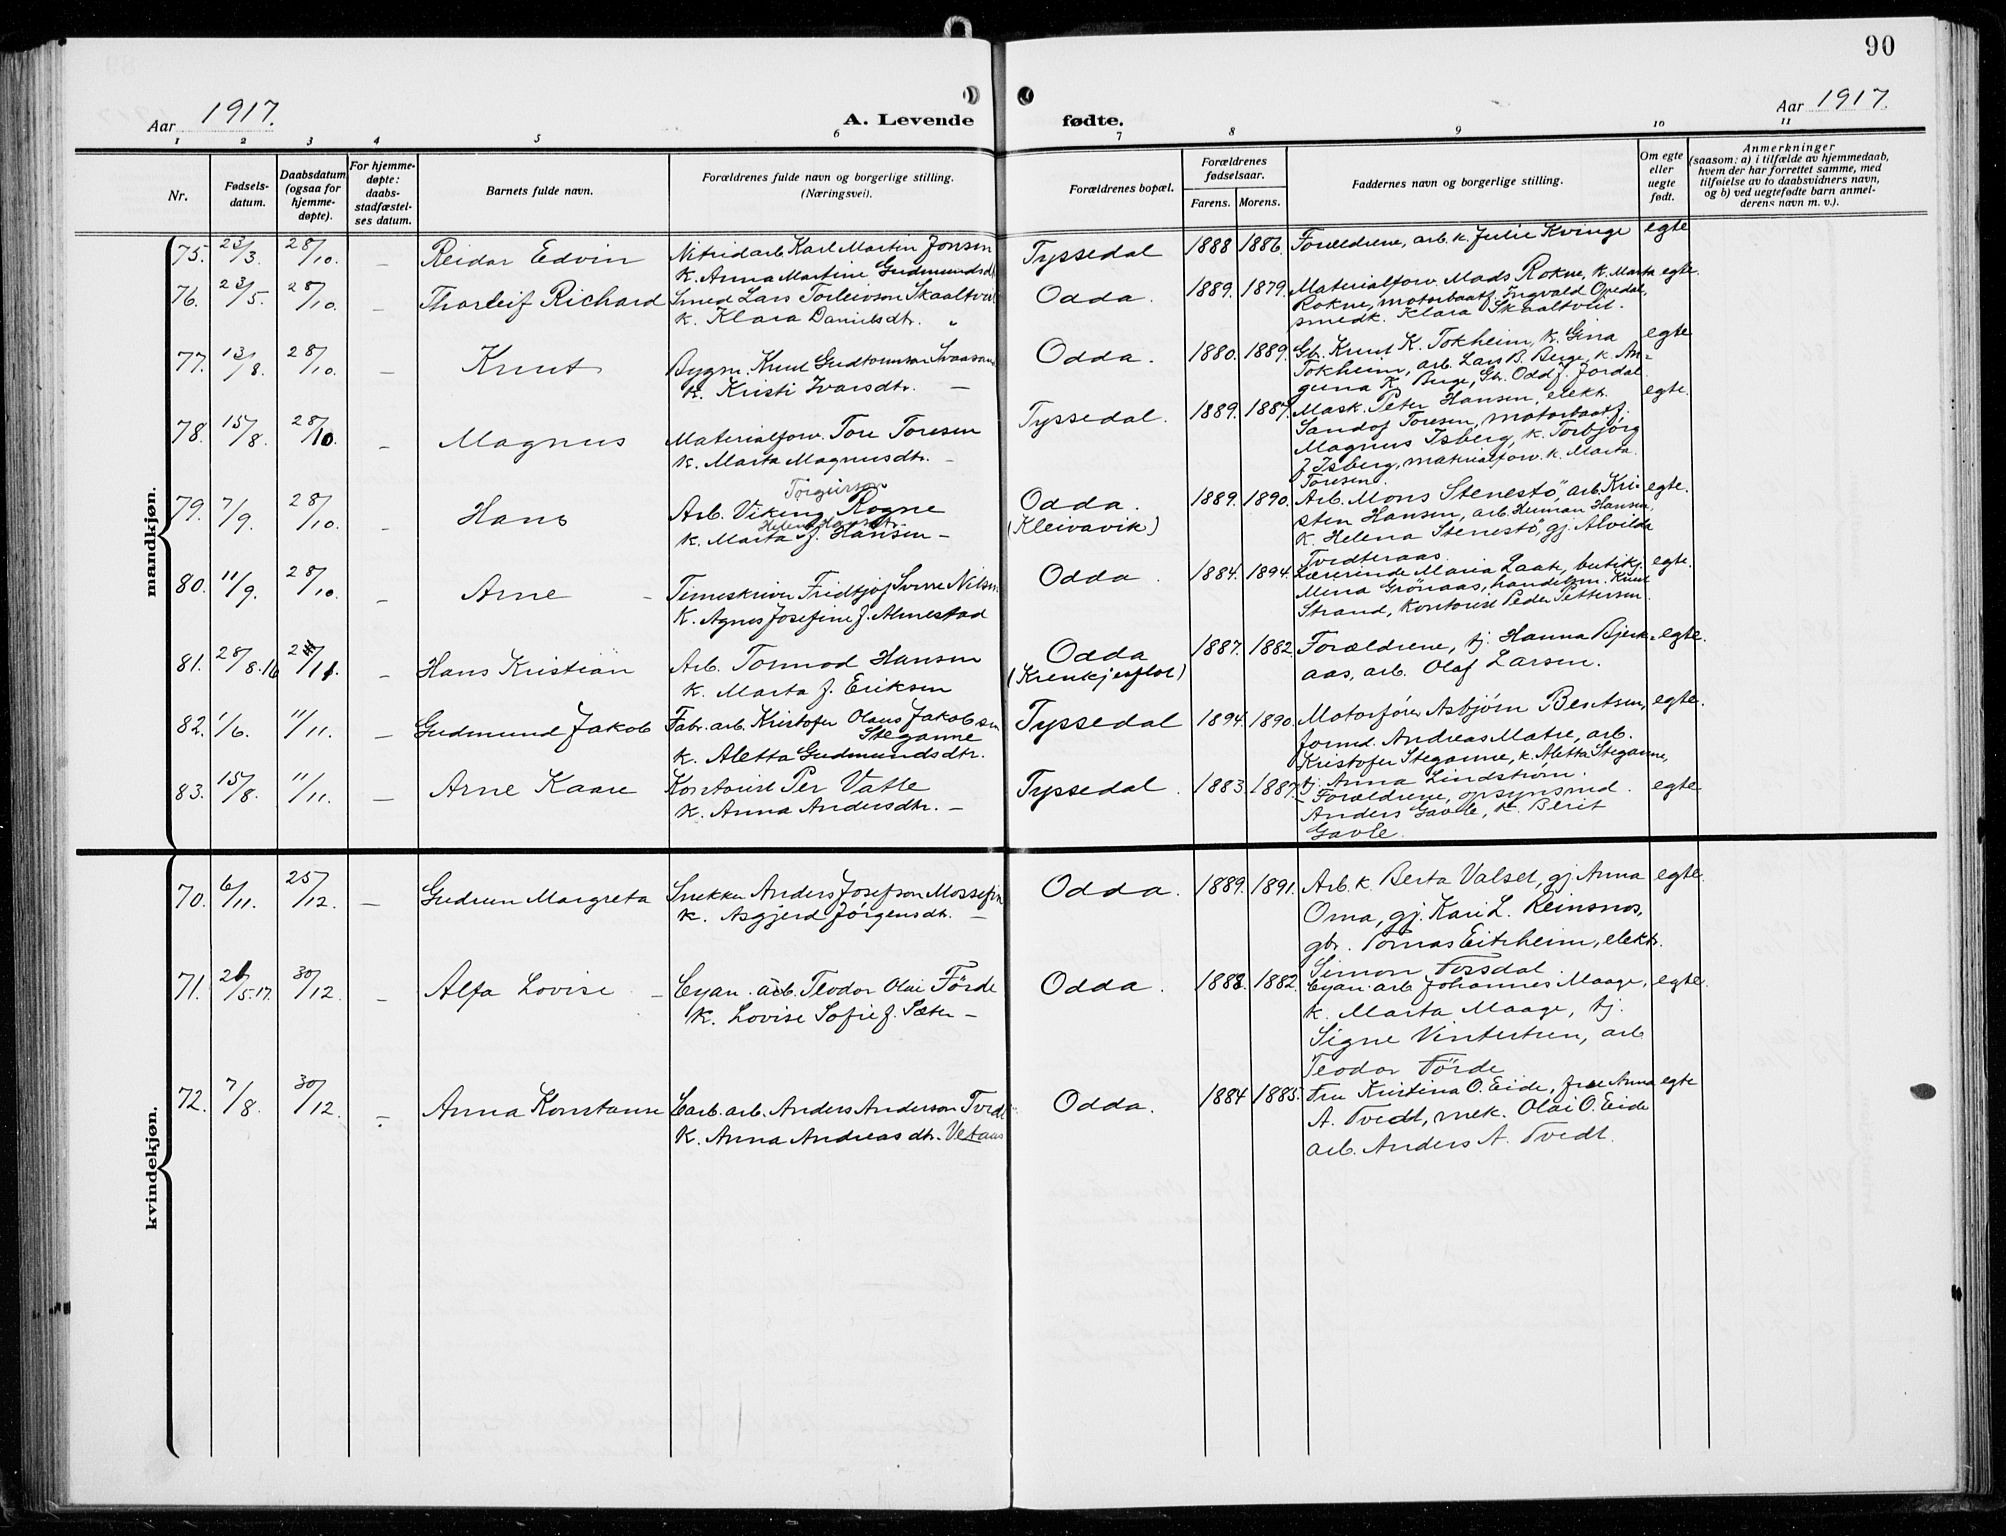 90
Aar 1917.
A. Levende fødte.
Aar 1917.
1 2 3 4 5 6 7 8 9 10 11
Nr.
Fødsels-
datum.
Daabsdatum
(ogsaa for
hjemme-
døpte).
For hjemme-
døpte:
daabs-
stadfæstel-
ses datum.
Barnets fulde navn.
Forældrenes fulde navn og borgerlige stilling.
(Næringsvei).
Forældrenes bopæl.
Forældrenes
fødselsaar.
Farens. Morens.
Faddernes navn og borgerlige stilling.
Om egte
eller
uegte
født.
Anmerkninger
(saasom: a) i tilfælde av hjemmedaab,
hvem der har forrettet samme, med
tilføielse av to daabsvidners navn,
og b) ved uegtefødte barn anmel-
derens navn m. v.).
mandkjøn.
75. 23/3. 28/10. – Reidar Edvin Nitridarb. Karl Martin Jonsen Tyssedal 1888 1886. Forældrene, arb. k. Julie Kvinge egte
k. Anna Martine Gudmundsdt
76. 23/5. 28/10. – Thorleif Richard Smed Lars Torleivson Skaaltveit Odda. 1889. 1879. Materialforv. Mads Rokne, k. Marta egte.
k. Klara Danielsdtr. „ Rokne, motorbaatf. Ingvald Opedal,
smedk. Klara Skaaltveit.
77. 13/8. 28/10. – Knut Bygm. Knut Gudtormson Svaasand Odda. 1880. 1889. Gb. Knut K. Tokheim, k. Gina egte
k. Kristi Ivarsdtr. – Tokheim, arb. Lars B. Berge, k. An-
guna K. Berge, Gb. Odd J. Jordal.
78. 15/8. 28/10. – Magnus Materialforv. Tore Toresen Tyssedal. 1889. 1887. Mask. Peter Hansen, elekt. egte.
k. Marta Magnusdtr. – Sandof Toresen, motorbaatf.
Magnus Isberg, k. Torbjørg
J Isberg, materialforv. k. Marta
Toresen.
79. 7/9. 28/10. – Hans Arb. Viking Torgeirson Rogne Odda. 1889. 1890. Arb. Mons Stenestö, arb. Kri- egte.
k. Marta Helene Hansdtr. f. Hansen – (Kleivavik) sten Hansen, arb. Herman Hansen,
k. Helena Stenestö, gj. Alvilda
Tvedteraas.
80. 11/9. 28/10. – Arne – Timeskriver Fridtjof Sverre Nilsen Odda. 1884. 1894. Lærerinde Maria Laate, butikj. egte.
k. Agnes Josefine f. Almestad Mena Grönaas, handelsm. Knut
Strand, Kontorist Peder Pettersen.
81. 28/8.16 2/11. – Hans Kristian Arb. Tormod Hansen Odda 1887. 1882. Forældrene, tj. Hanna Bjerk- egte.
k. Marta f. Eriksen aas, arb. Olaf Larsen.
82. 1/6. 11/11. – Gudmund Jakob Fabr. arb. Kristofer Olaus Jakobsen Tyssedal 1894. 1890. Motorfører Asbjørn Bentsen, egte.
Steganne formd. Andreas Matre, arb.
k. Aletta Gudmundsdtr. Kristofer Steganne, k. Aletta Steganne,
tj. Anna Lindstrøm.
83. 15/8. 11/11. – Arne Kaare Kontorist Per Vatle Tyssedal. 1883. 1887. Forældrene, opsynsmd. egte
k. Anna Andersdtr. – Anders Gavle, k. Berit
Gavle.
kvindekjøn.
70. 6/11. 25/12. – Gudrun Margreta Snekker Anders Josefson Mossefin Odda. 1889. 1891. Arb. k. Berta Valset, gj. Anna egte.
k. Asgjerd Jörgensdtr. – Oma, gj. Kari L. Reinsnos,
gbr. Tomas Eitrheim, elektr.
Simon Fossdal.
71. 21/5.17. 30/12. – Alfa Lovise – Cyan. arb. Teodor Olai Förde Odda. 1888. 1882. Cyan. arb. Johannes Maage, egte.
k. Lovise Sofie f. Sæter – k. Marta Maage, tj.
Signe Vintertun, arb
Teodor Förde
72. 7/8. 30/12. – Anna Konstanse Carb. arb. Anders Anderson Tvedt Odda. 1884 1885. Fru Kristina O. Eide, frue Anna egte
k. Anna Andreasdtr. Vetaas A. Tvedt, mek. Olai O. Eide
arb. Anders A. Tvedt.